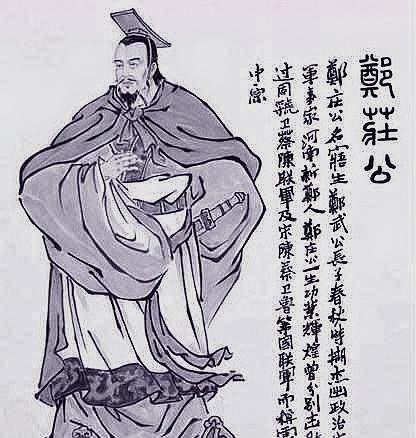 鄭莊公
鄭庄公名寤生鄭武公長子春秋時期杰出政治
軍事家河南新鄭人鄭庄公一生功業輝煌曾分别击
过周虢卫蔡陳联軍及宋陳蔡卫魯等国联軍而稱
中原